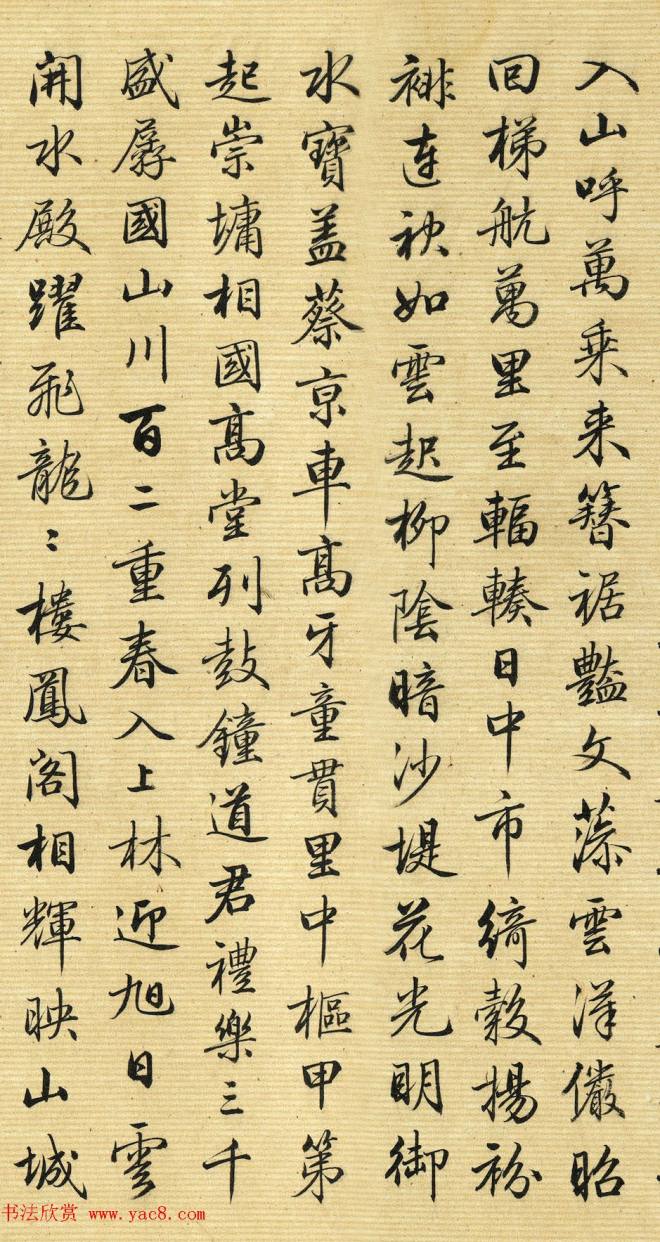 入山呼萬乘来簪裾豔文藻雲漢儼昭
回梯航萬里至輻輳日中市綺縠揚衯
裶連袂如雲起柳陰暗沙堤花光明御
水寶盖蔡京車髙牙童貫里中樞甲第
起崇墉相國髙堂列鼓鐘道君禮樂三千
盛孱國山川百二重春入上林迎旭日雲
開水殿躍飛龍〻樓鳳阁相輝映山城
书法欣赏 www.yac8.com